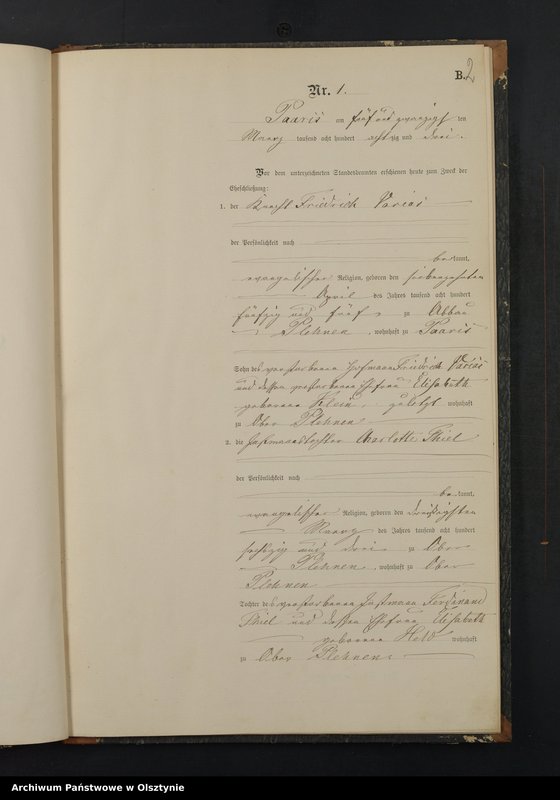 B. 2
Nr. 1.
Paaris am fünf und zwanzigsten
Maerz tausend acht hundert achtzig und drei.
Vor dem unterzeichneten Standesbeamten erschienen heute zum Zweck der
Eheschließung:
1. der Knecht Friedrich
der Persönlichkeit nach
bekannt,
evangelischer Religion, geboren den siebenzehnten
April des Jahres tausend acht hundert
fünfzig und fünf zu Abbau
Plehnen, wohnhaft zu Paaris
Sohn des verstorbenen Hofmann Friedrich
und dessen verstorbenen Ehefrau Elisabeth
geborenen Klein, zuletzt wohnhaft
zu Ober Plehnen
2. die Instmannstochter Charlotte Thiel
der Persönlichkeit nach
bekannt,
evangelischer Religion, geboren den dreißigsten
Maerz des Jahres tausend acht hundert
sechzig und drei zu Ober
Plehnen, wohnhaft zu Ober
Plehnen
Tochter des verstorbenen Instmann Ferdinand
Thiel und dessen Ehefrau Elisabeth
geborenen Held wohnhaft
zu Ober Plehnen
Archiwum Państwowe w Olsztynie